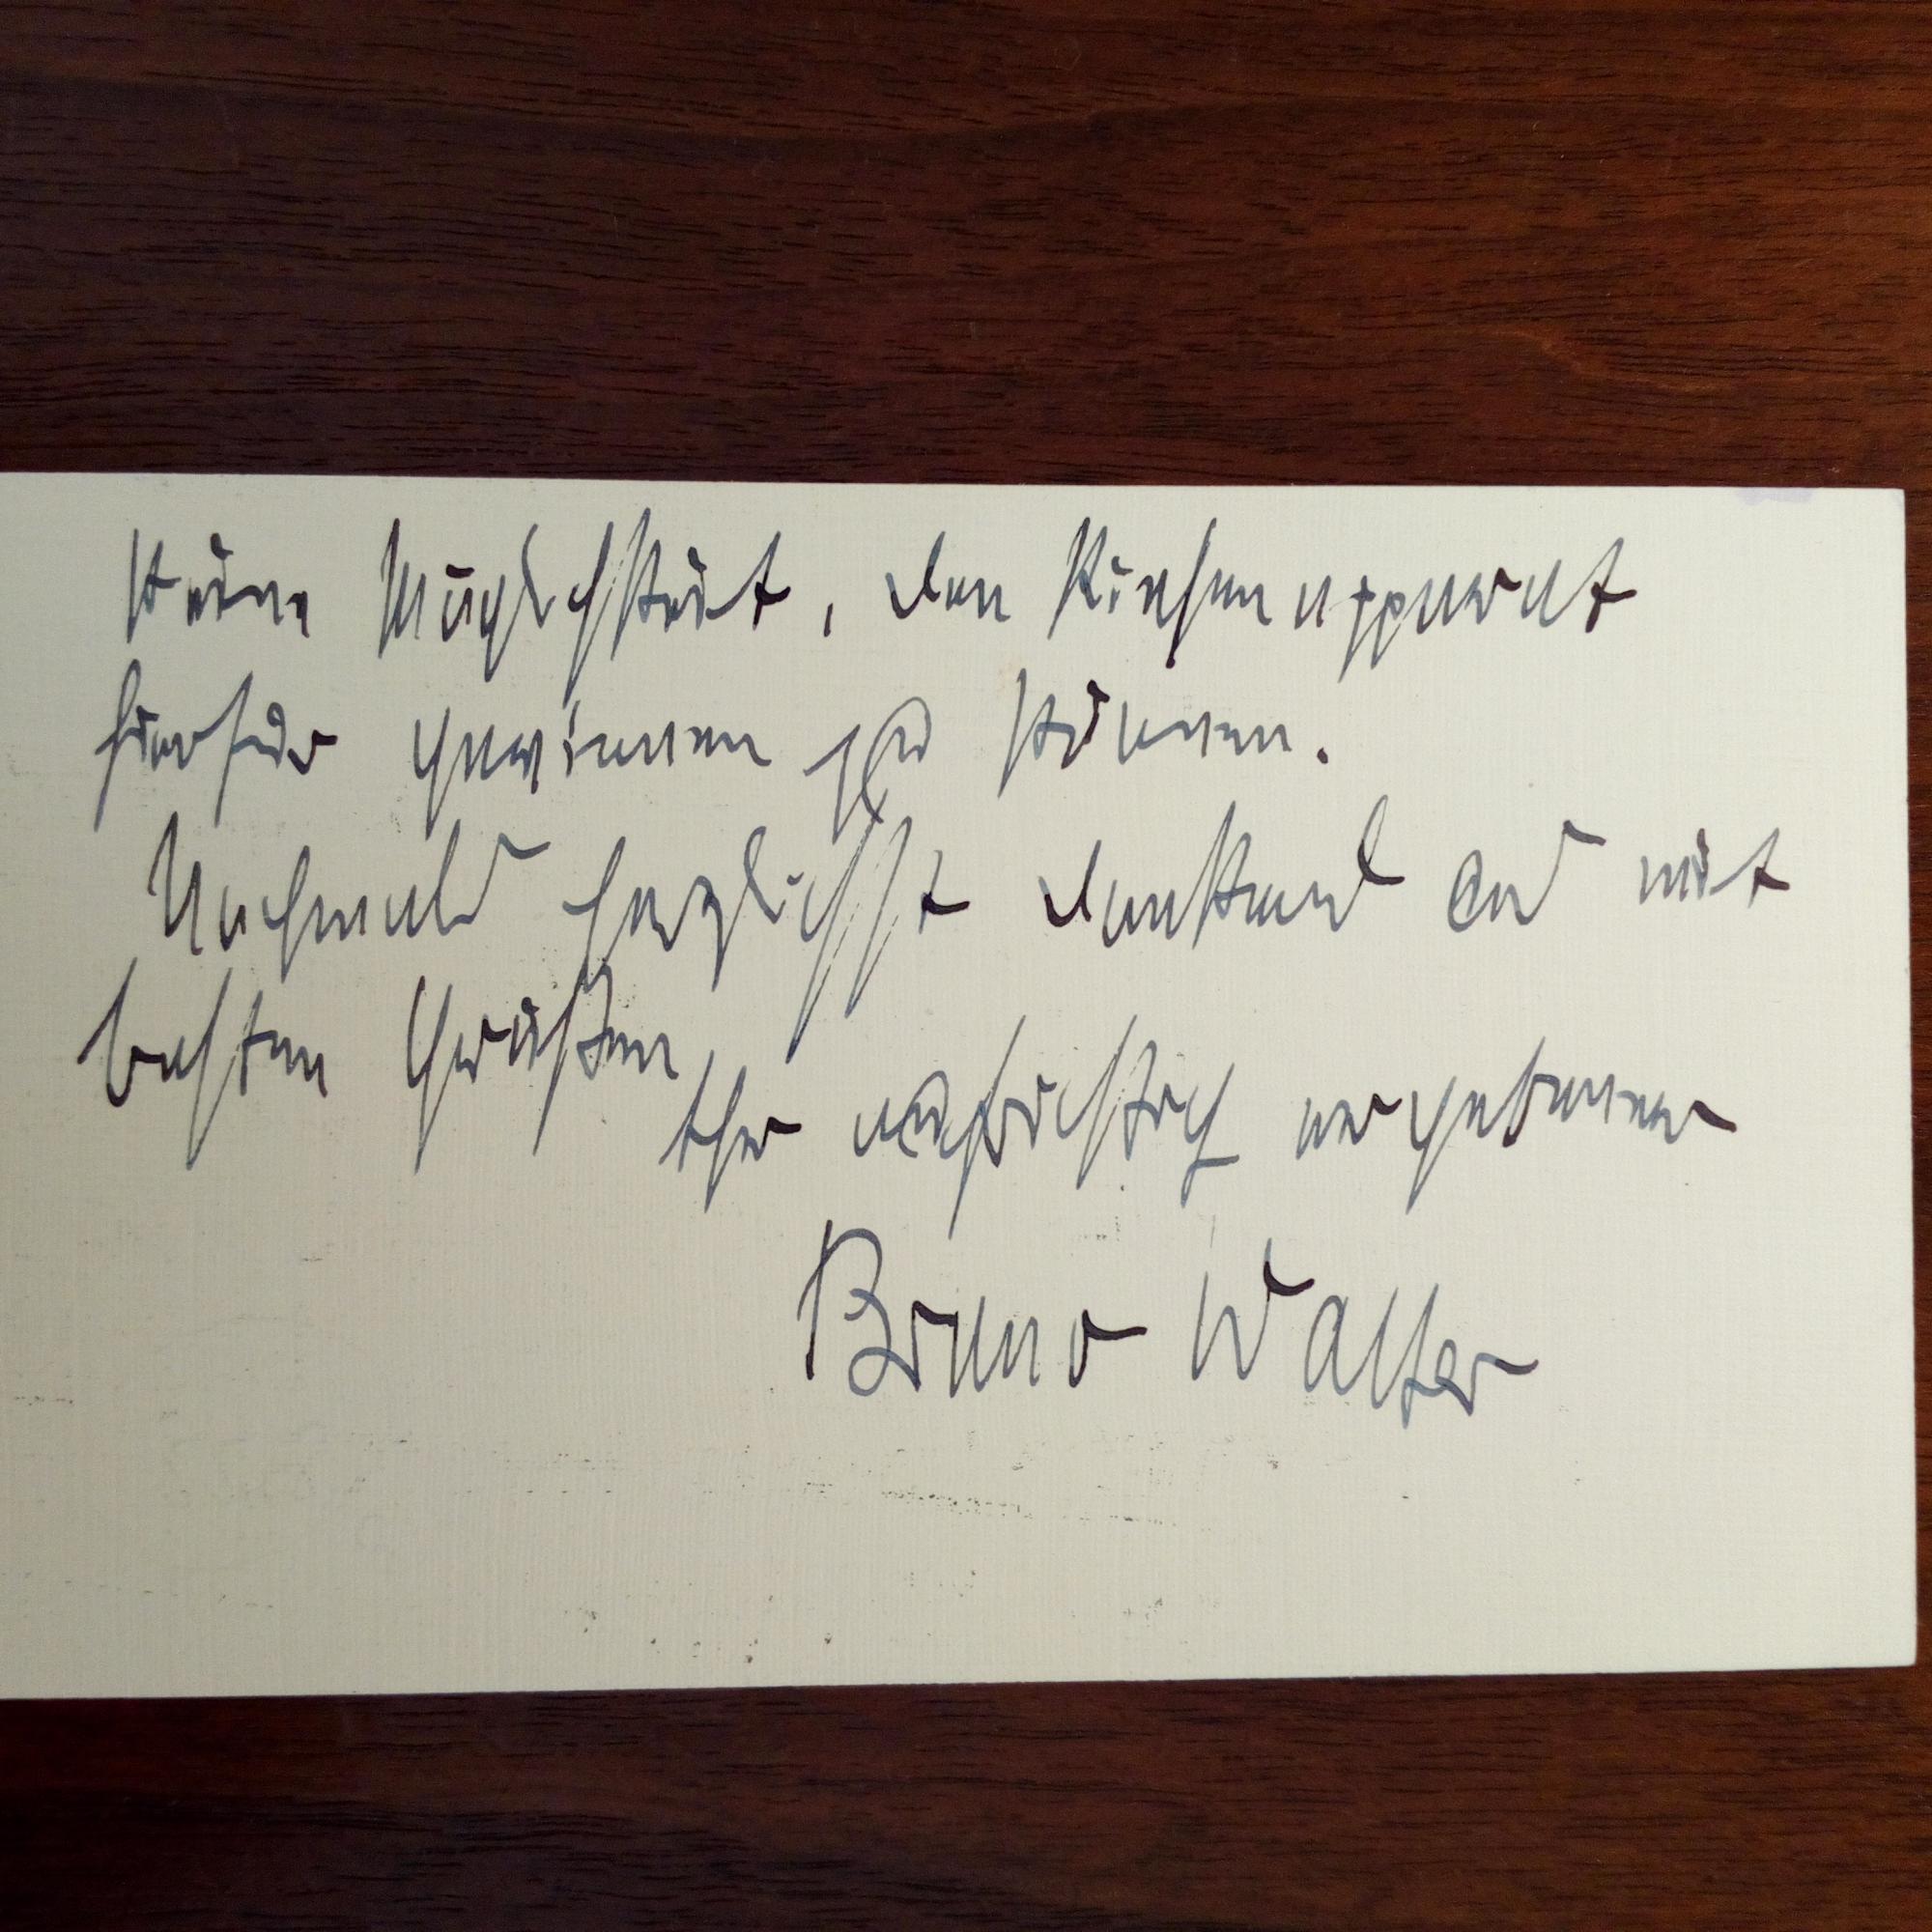 keine Möglichkeit, den Riesenapparat
hierfür gewinnen zu können.
Nochmals herzlichst dankend und mit
besten Grüßen
Ihr aufrichtig ergebener
Bruno Walter